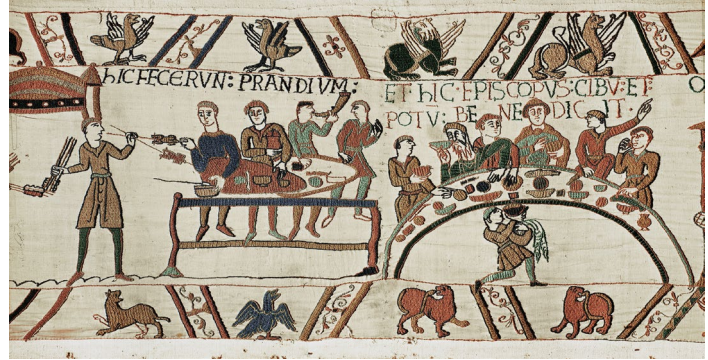 hIC FECERVN: PRANDIVM:
ET hIC·EPISCOPVS:CIBV:ET
POTV: BE NE DIC IT·